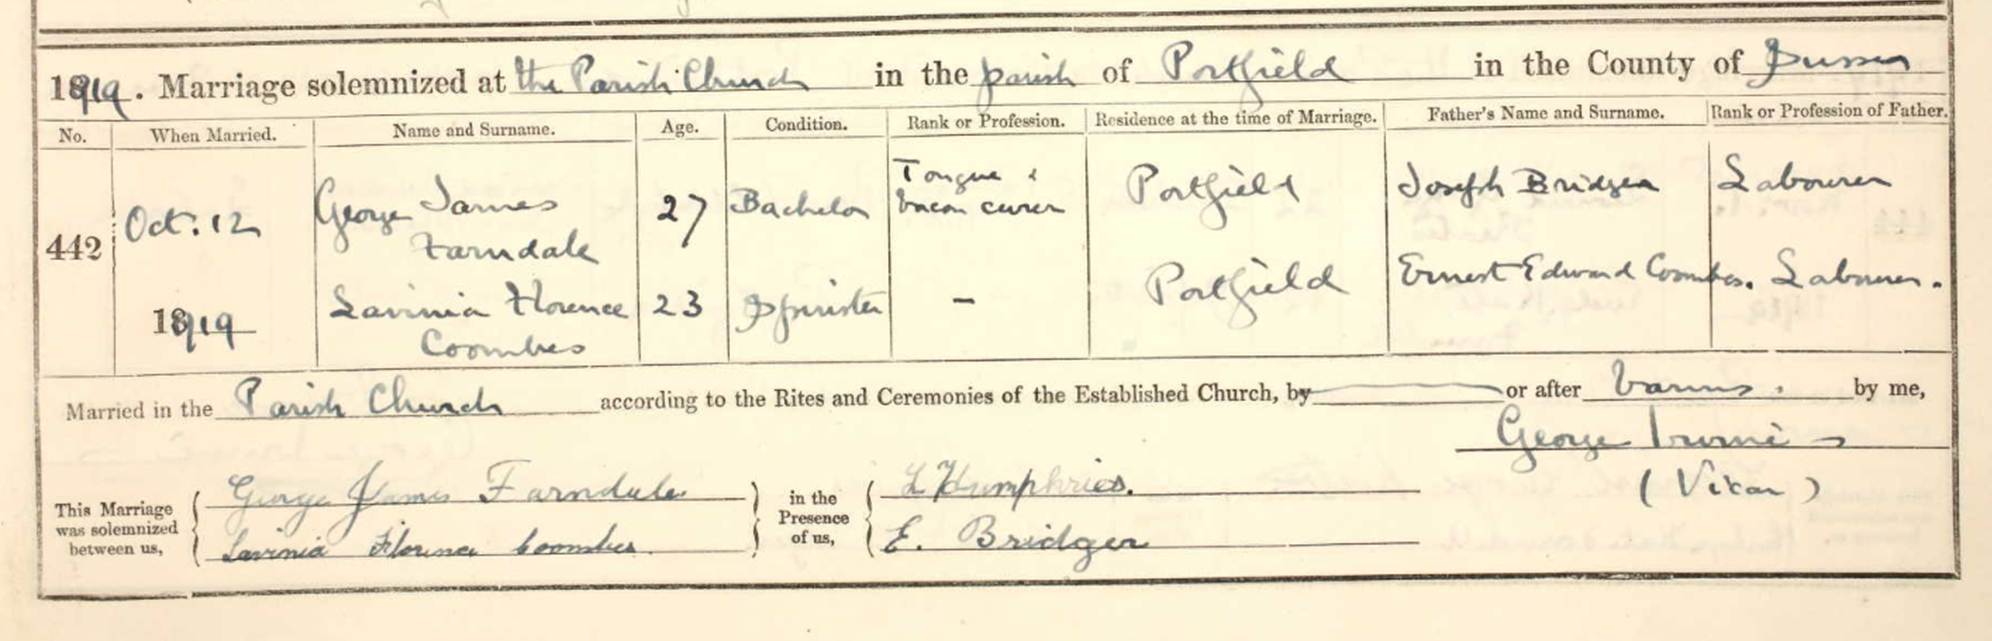 1919. Marriage solemnized at the Parish Church in the parish of Portfield in the County of Sussex
No. When Married. Name and Surname. Age. Condition. Rank or Profession. Residence at the time of Marriage. Father's Name and Surname. Rank or Profession of Father.
442 Oct. 12 1919
George James Farndale 27 Bachelor Tongue & bacon curer Portfield Joseph Bridger Labourer
Lavinia Florence Coombes 23 Spinster – Portfield Ernest Edward Coombes. Labourer.
Married in the Parish Church according to the Rites and Ceremonies of the Established Church, by or after banns. by me,
George Irvine
(Vicar)
This Marriage was solemnized between us, George James Farndale in the Presence of us, L Humphries.
Lavinia Florence Coombes. E. Bridger